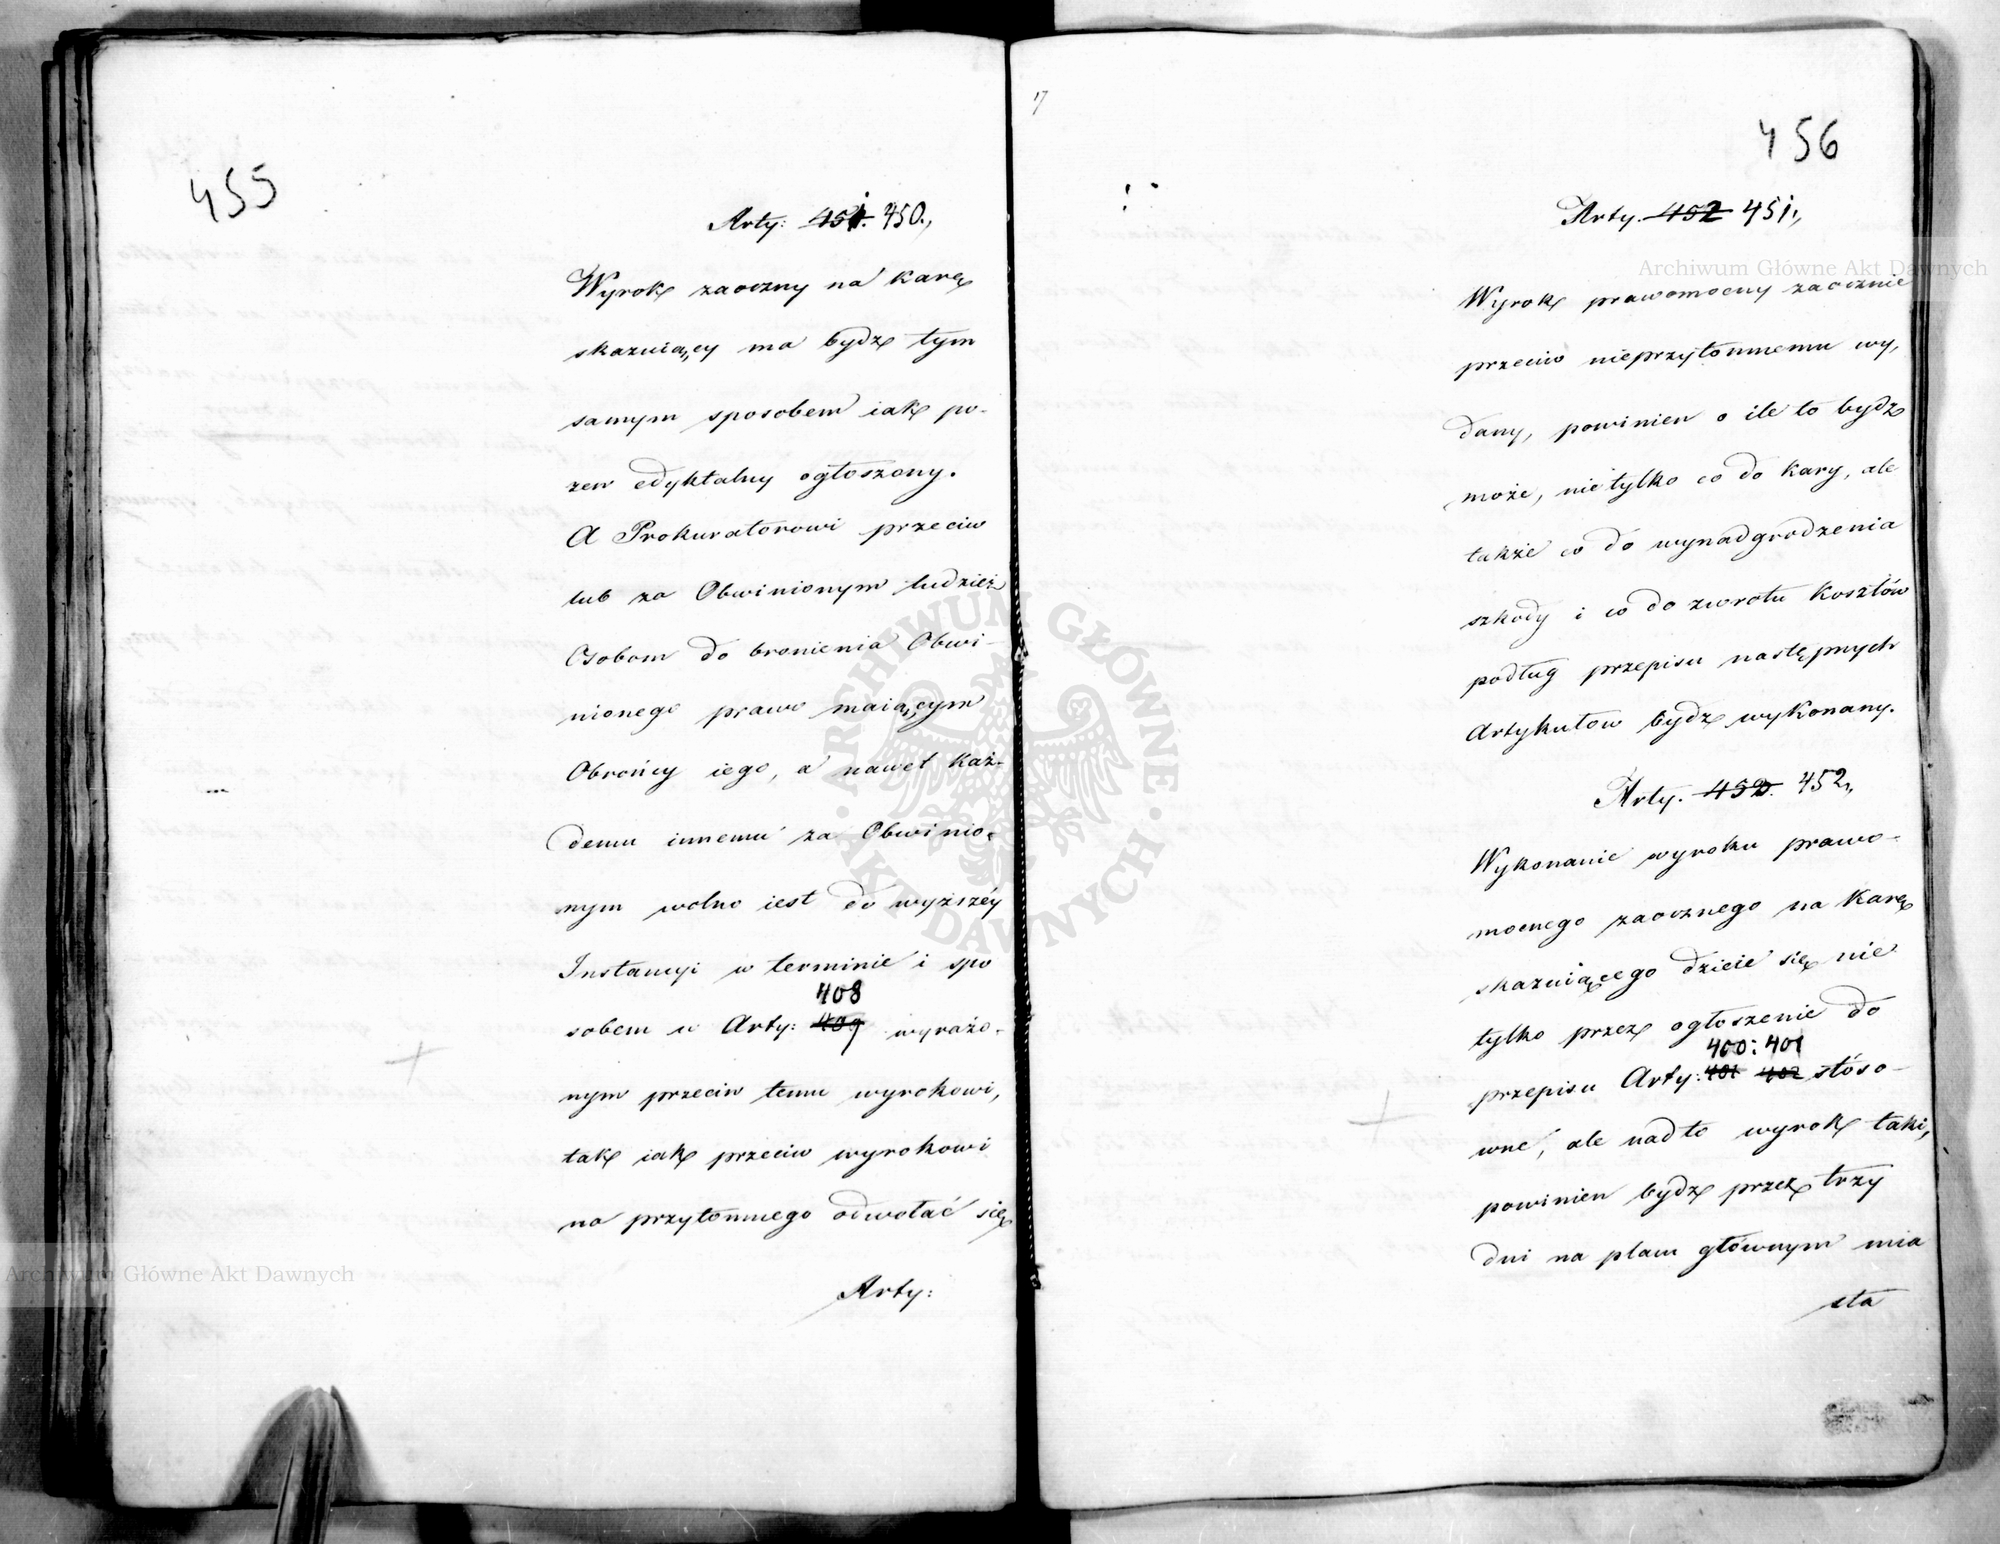 455
Arty: 451. 450.,
Wyrok zaoczny na karę
skazuiący ma bydz tym
samym sposobem iak po-
zew edyktalny ogłoszony.
A Prokuratorowi przeciw
lub za Obwinionym tudzież
Osobom do bronienia Obwi-
nionego prawo maiącym
Obrońcy iego, a nawet każ-
demu innemu za Obwinio-
nym wolno iest do wyższéy
Instancyi w terminie i spo
408
sobem w Arty: 409 wyrażo-
nym przeciw temu wyrokowi,
tak iak przeciw wyrokowi
na przytomnego odwołać się
Arty:
456
Arty. 452 451.,
Wyrok prawomocny zaocznie
przeciw nieprzytomnemu wy,
dany, powinien o ile to bydz
może, nietylko co do kary, ale
także co do wynadgrodzenia
szkody i co do zwrotu kosztów
podług przepisu następnych
Artykułow bydz wykonany.
Arty. 453. 452.,
Wykonanie wyroku prawo-
mocnego zaocznego na karę
skazuiącego dzieie się nie
tylko przez ogłoszenie do
400: 401
przepisu Arty: 401 402 stóso-
wne, ale nadto wyrok taki,
powinien bydz przez trzy
dni na placu głównym mia
sta
Archiwum Główne Akt Dawnych
Archiwum Główne Akt Dawnych
ARCHIWUM GŁÓWNE · AKT DAWNYCH ·